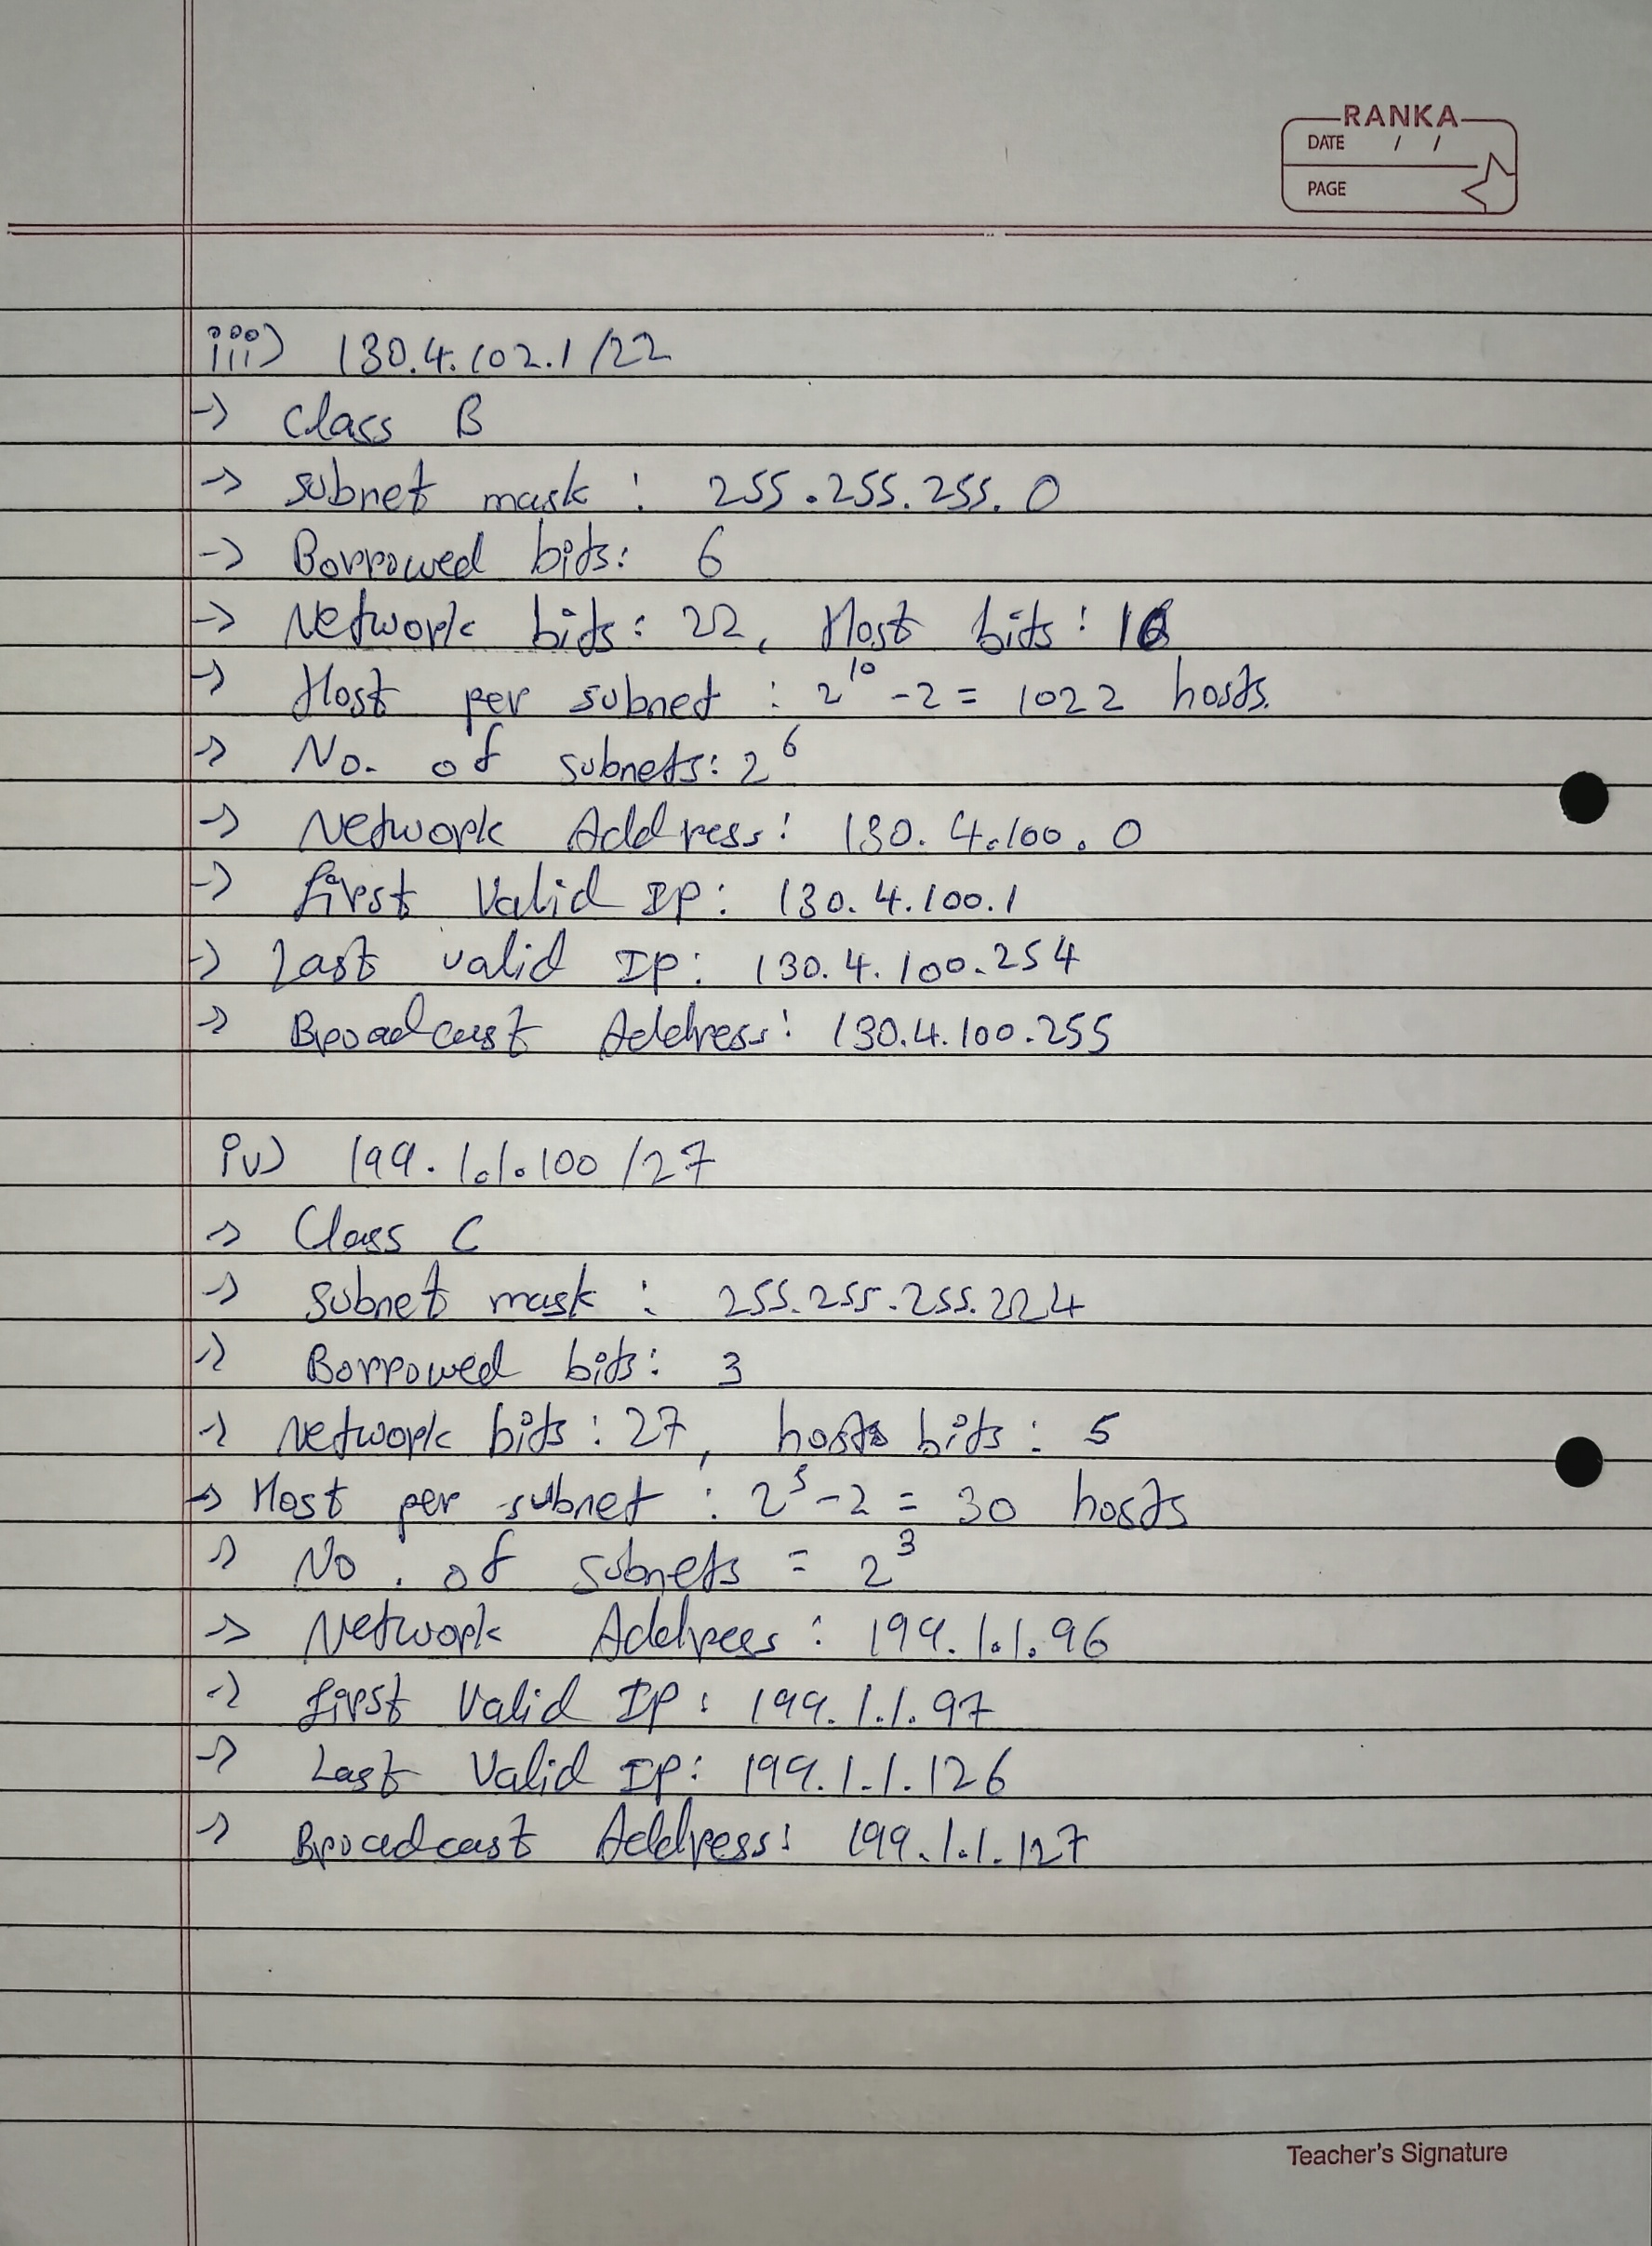 RANKA
DATE / /
PAGE
iii) 130.4.102.1/22
-> Class B
-> subnet mask : 255.255.255.0
-> Borrowed bits: 6
-> Network bits: 22, Host bits:
-> Host per subnet : 2^10 - 2 = 1022 hosts.
-> No. of subnets: 2^6
-> Network Address: 130.4.100.0
-> first Valid IP: 130.4.100.1
-> Last valid IP: 130.4.100.254
-> Broadcast Address: 130.4.100.255
iv) 199.1.1.100/27
-> Class C
-> subnet mask : 255.255.255.224
-> Borrowed bits: 3
-> Network bits: 27, hosts bits: 5
-> Host per subnet : 2^5 - 2 = 30 hosts
-> No. of subnets = 2^3
-> Network Address: 199.1.1.96
-> first Valid IP: 199.1.1.97
-> Last Valid IP: 199.1.1.126
-> Broadcast Address: 199.1.1.127
Teacher's Signature